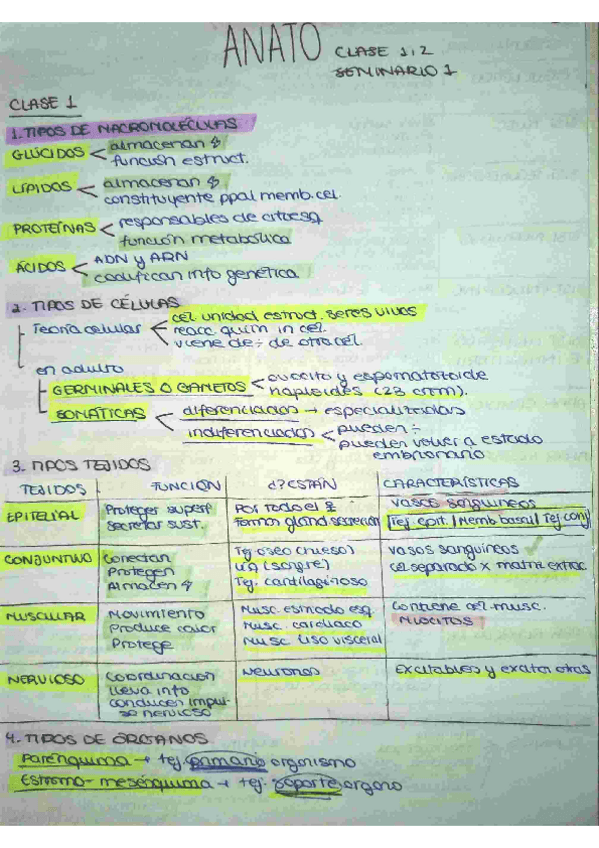 ANATO CLASE 1, 2
SEMINARIO 1
CLASE 1
1. TIPOS DE MACROMOLÉCULAS
GLÚCIDOS < almacenan
función estruct.
LÍPIDOS < almacenan
constituyente ppal memb. cel.
PROTEÍNAS < responsables de
función metabólica
ÁCIDOS < ADN y ARN
codifican info genética
2. TIPOS DE CÉLULAS
Teoría celular < cel unidad estruct. seres vivos
reacc. quim in cel.
viene de ÷ de otra cel.
en adulto
GERMINALES O GAMETOS < ovocito y espermatozoide
haploides (23 crom).
SOMÁTICAS < diferenciadas → especializadas
indiferenciadas < pueden ÷
pueden volver a estado
embrionario
3. TIPOS TEJIDOS
TEJIDOS FUNCIÓN d? ESTÁN CARACTERÍSTICAS
EPITELIAL Proteger superf. Por todo el vasos sanguíneos
Secretar sust. Forman gland secreción Tej. epit. / Memb basal / Tej conj
CONJUNTIVO Conectan Tej óseo (hueso) vasos sanguíneos
Protegen (sangre) cel separado x matriz extrac.
Almacen Tej. cartilaginoso
MUSCULAR Movimiento Musc. esq. Contiene cel musc.
Produce calor Musc. cardiaco MIOCITOS
Protege Musc liso visceral
NERVIOSO Coordinación Neuronas Excitables y excitan otras
lleva info
conducen impul-
so nervioso
4. TIPOS DE ÓRGANOS
Parénquima → tej. primario organismo
Estroma - mesénquima → tej. soporte órgano